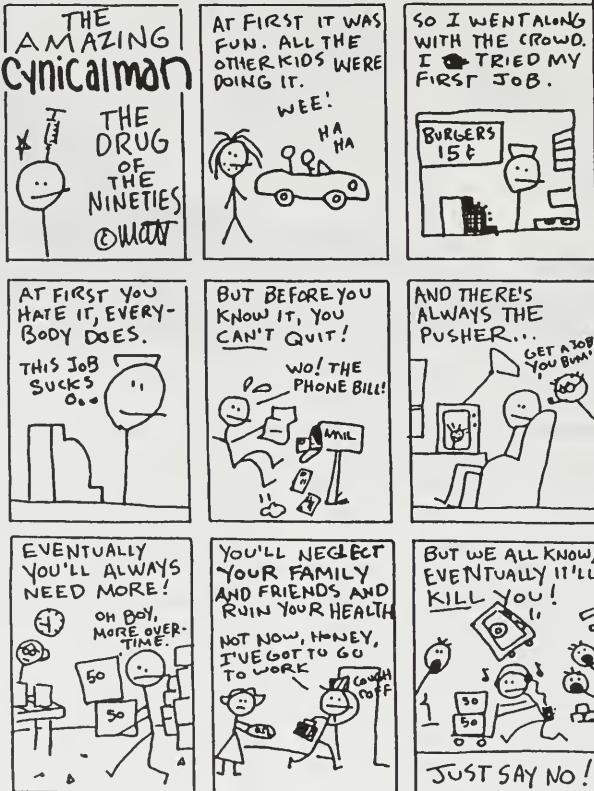 THE
AMAZING
Cynicalman
THE
DRUG
OF
THE
NINETIES
© Matt
AT FIRST IT WAS
FUN. ALL THE
OTHER KIDS WERE
DOING IT.
WEE!
HA
HA
SO I WENT ALONG
WITH THE CROWD.
I TRIED MY
FIRST JOB.
BURGERS
15¢
AT FIRST YOU
HATE IT, EVERY-
BODY DOES.
THIS JOB
SUCKS
BUT BEFORE YOU
KNOW IT, YOU
CAN'T QUIT!
WO! THE
PHONE BILL!
MAIL
AND THERE'S
ALWAYS THE
PUSHER...
GET A JOB
YOU BUM!
EVENTUALLY
YOU'LL ALWAYS
NEED MORE!
OH BOY,
MORE OVER-
TIME.
50
50
YOU'LL NEGLECT
YOUR FAMILY
AND FRIENDS AND
RUIN YOUR HEALTH
NOT NOW, HONEY,
I'VE GOT TO GO
TO WORK
COUGH
COFF
BUT WE ALL KNOW,
EVENTUALLY IT'LL
KILL YOU!
50
50
JUST SAY NO!